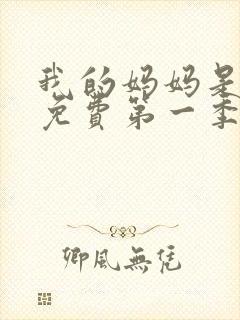 我的妈妈是
免费第一季
卿風無凭